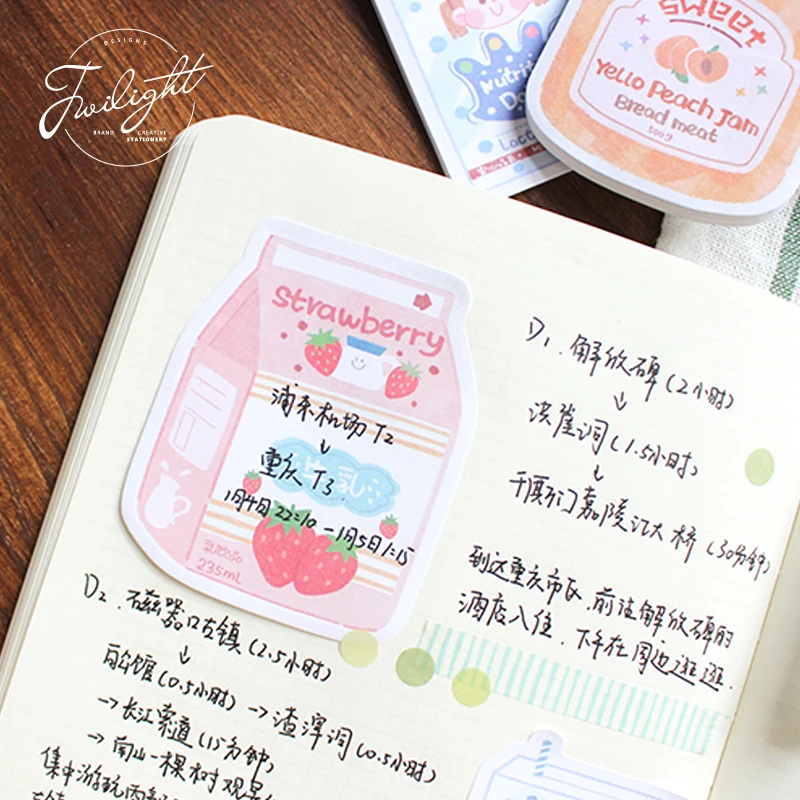 DESIGNS
Twilight
BRAND CREATIVE
STATIONERY
sweet
Yello Peach Jam
Bread meat
500g
Nutriti
Lact
Strawberry
浦东机场 T2
↓
重庆 T3
1月4日 22:10 - 1月5日 1:15
乳
乳饮品
235mL
D1. 解放碑 (2小时)
↓
洪崖洞 (1.5小时)
↓
千厮门嘉陵江大桥 (30分钟)
到达重庆市区, 前往解放碑的
酒店入住, 下午在周边逛逛.
D2. 磁器口古镇 (2.5小时)
↓
白公馆 (0.5小时) → 渣滓洞 (0.5小时)
→ 长江索道 (15分钟)
→ 南山一棵树观景
集中游玩两